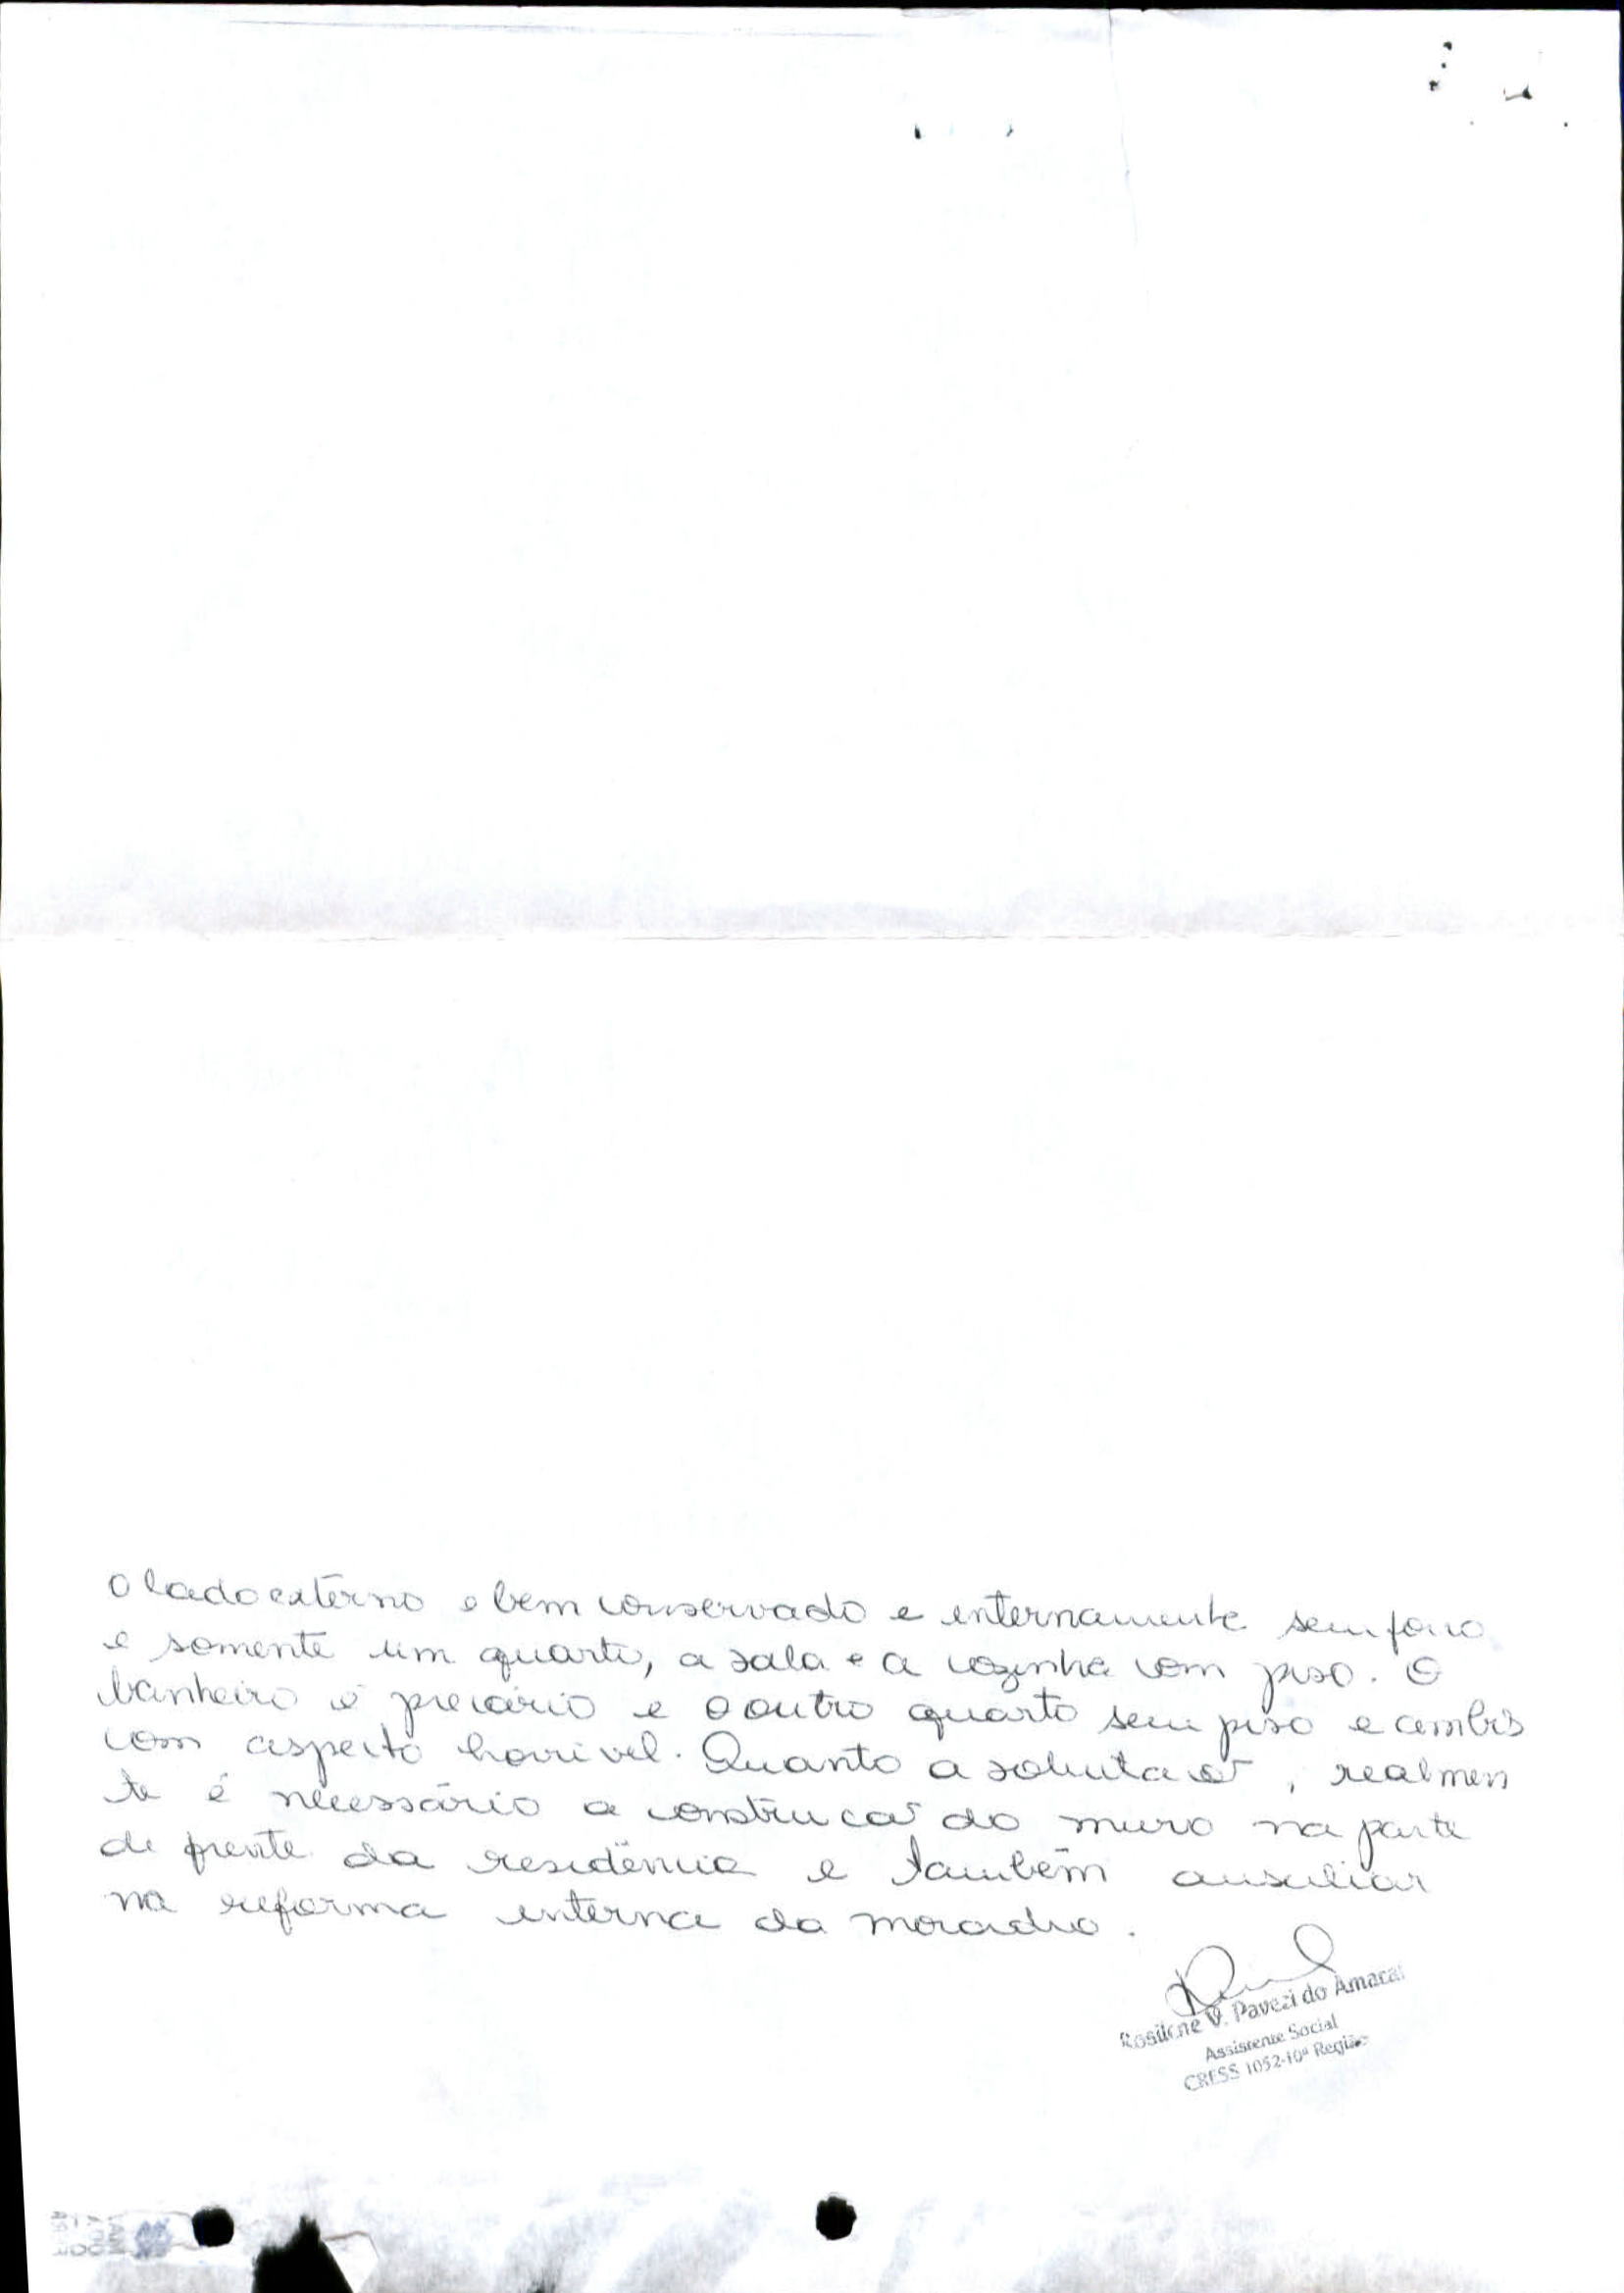 O lado externo e bem conservado e internamente sem forro
e somente um quarto, a sala e a cozinha com piso. O
banheiro é precário e o outro quarto sem piso e ambos
com aspecto horrivel. Quanto a solicitação, realmen
te é necessário a construcão do muro na parte
de frente da residência e também auxiliar
na reforma interna da moradia.
Rosilene V. Pavezi do Amaral
Assistente Social
CRESS 1052-10ª Região